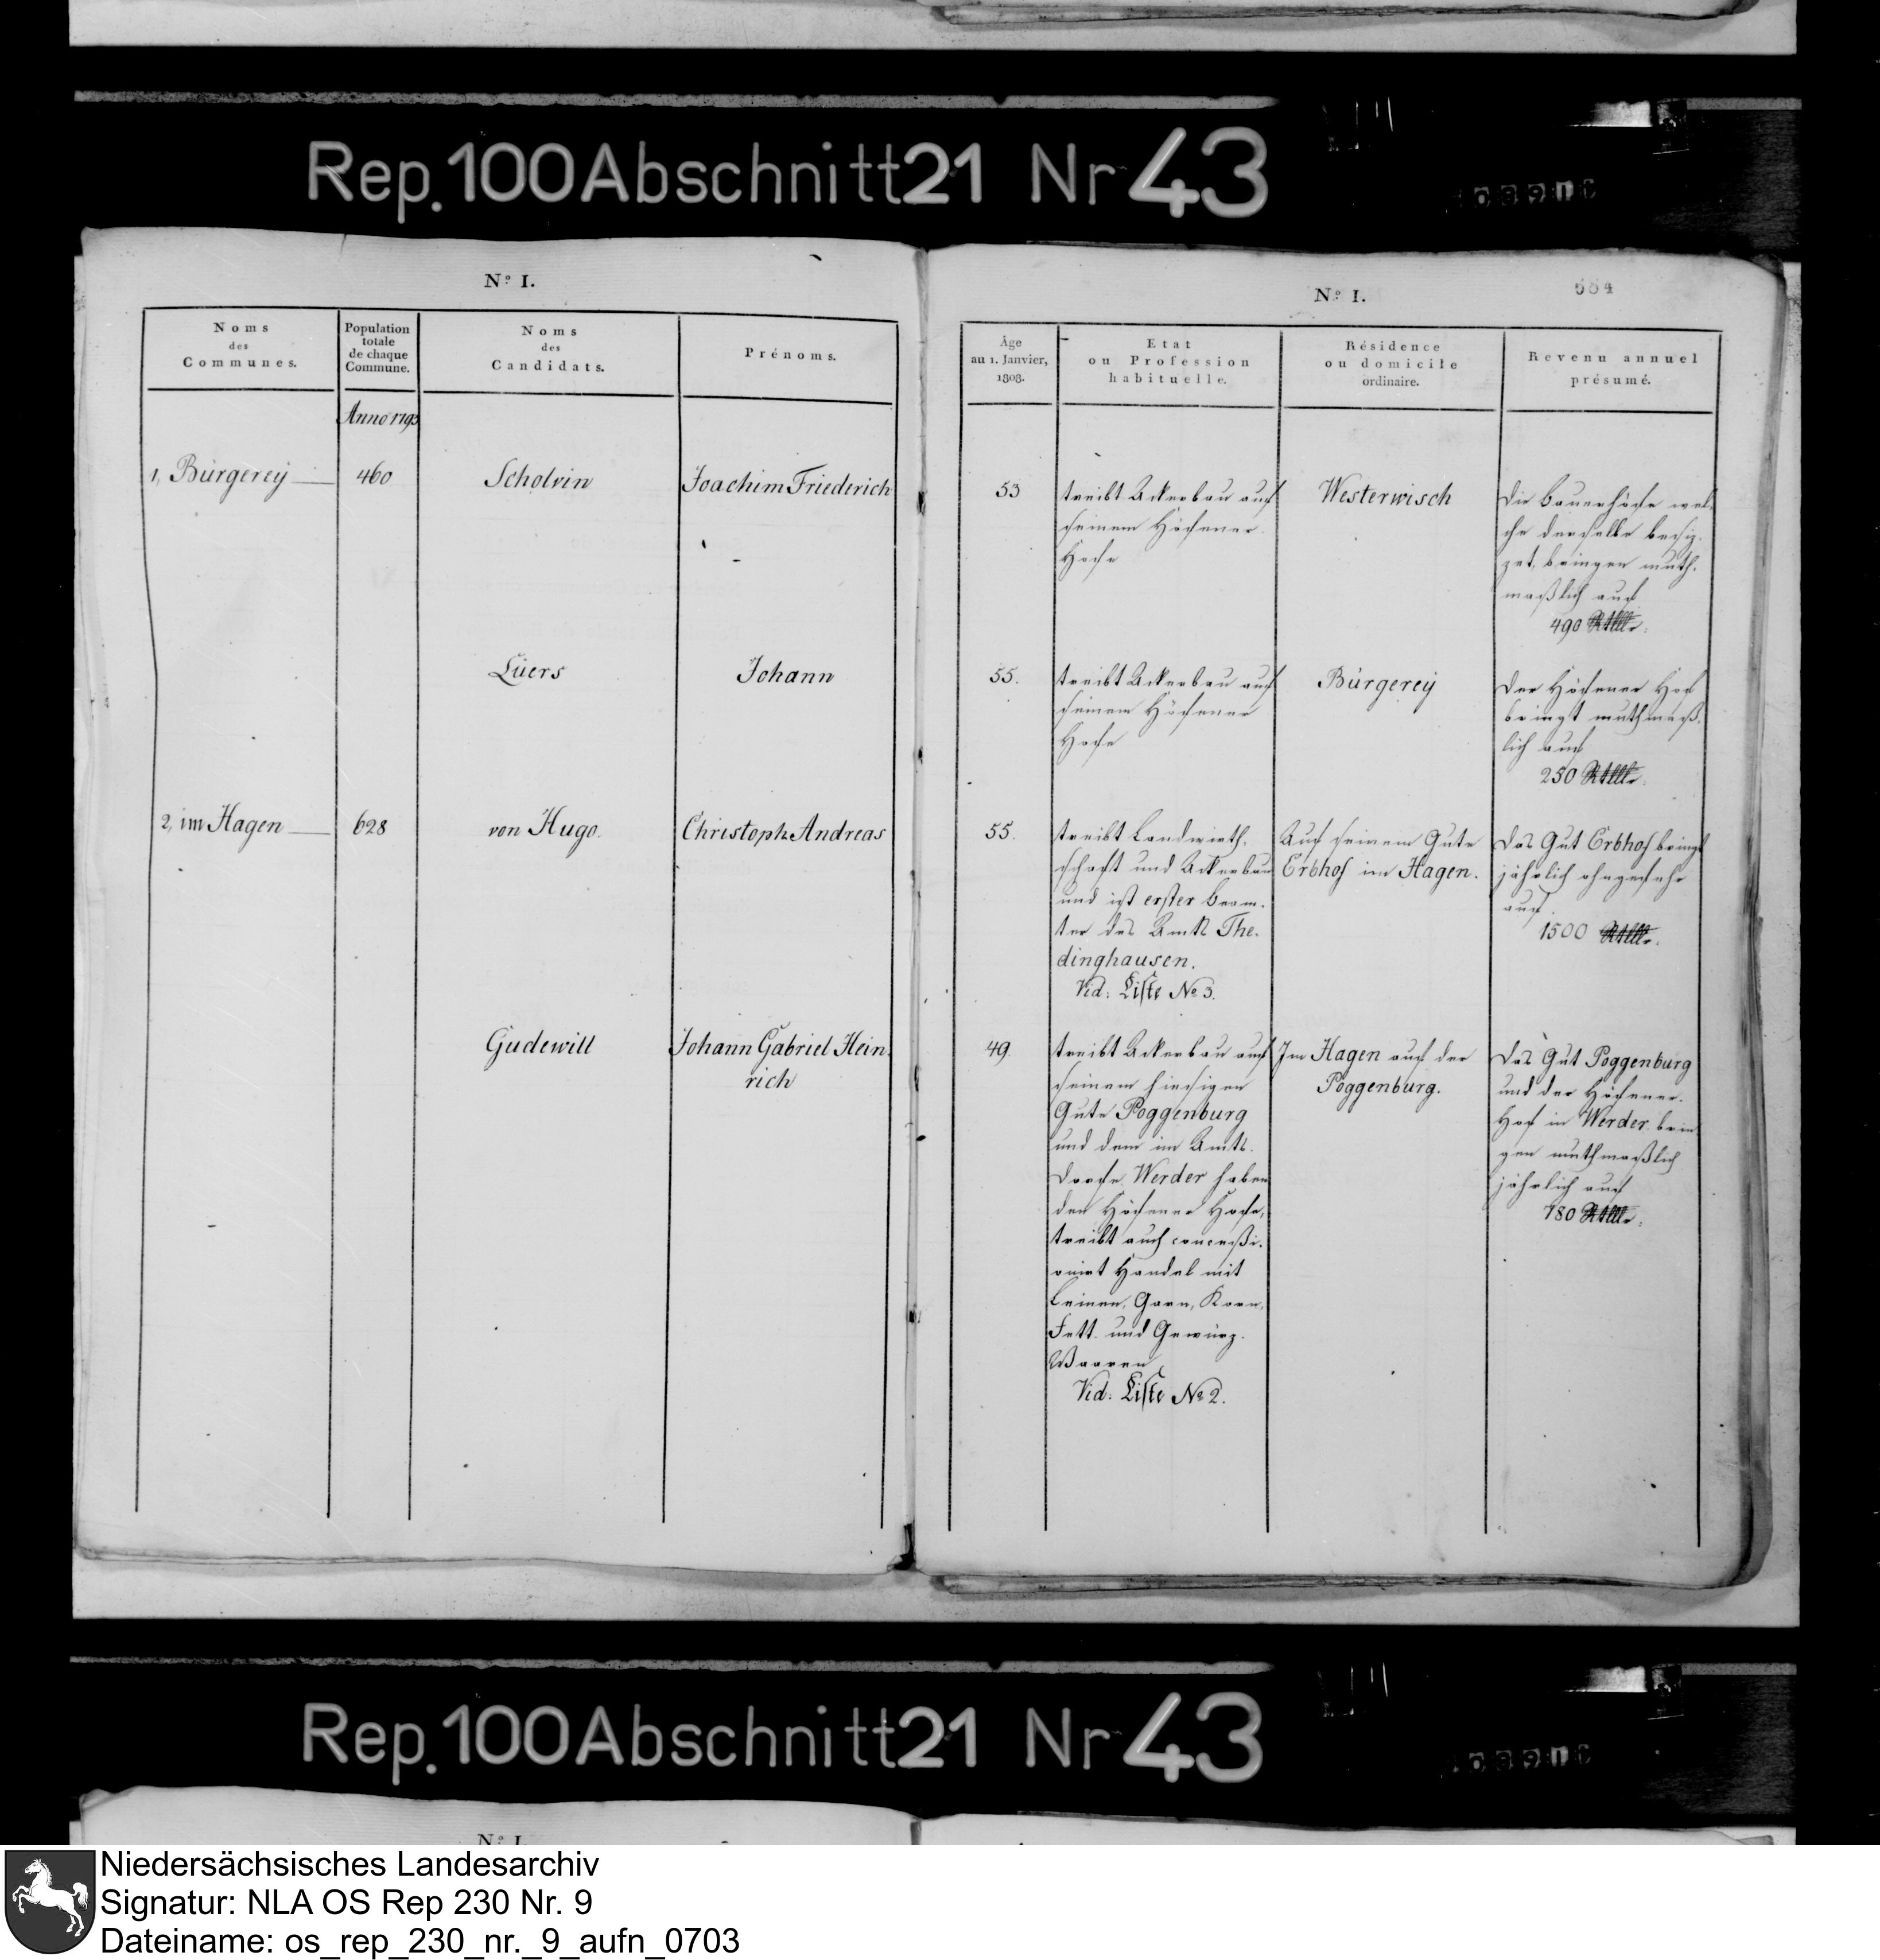 Rep. 100 Abschnitt 21 Nr 43
Nº I.
Noms
des
Communes.
Population
totale
de chaque
Commune.
Noms
des
Candidats.
Prénoms.
Anno 1793
1, Bürgereÿ
460
Scholvin
Joachim Friederich
Lüers
Johann
2, im Hagen
628
von Hugo.
Christoph Andreas
Gudewill
Johann Gabriel Hein-
rich
Nº I.
684
Âge
au 1. Janvier,
1808.
Etat
ou Profession
habituelle.
Résidence
ou domicile
ordinaire.
Revenu annuel
présumé.
53
treibt Ackerbau auf
seinem Höfener
Hofe
Westerwisch
Die Bauerhöfe wel-
che derselbe besiz-
zet, bringen muth-
maßlich auf
490
55.
treibt Ackerbau auf
seinem Höfener
Hofe
Bürgereÿ
Der Höfener Hof
bringt muthmaß-
lich auf
250
55.
treibt Landwirth-
schaft und Ackerbau
und ist erster Beam-
ter des Amts The-
dinghausen.
Vid: Liste No 3.
Auf seinem Gute
Erbhof im Hagen.
Das Gut Erbhof bringt
jährlich ohngefehr
auf
1500
49.
treibt Ackerbau auf
seinem hiesigen
Gute Poggenburg
und dem im Amts-
Dorfe Werder haben
den Höfener Hofe,
treibt auch conceßi-
onirt Handel mit
Leinen, Garn, Korn,
Fett- und Gewürz-
Waaren
Vid: Liste No 2.
Im Hagen auf der
Poggenburg.
Das Gut Poggenburg
und der Höfener-
Hof in Werder brin-
gen muthmaßlich
jährlich auf
780
Rep. 100 Abschnitt 21 Nr 43
Nº I.
Niedersächsisches Landesarchiv
Signatur: NLA OS Rep 230 Nr. 9
Dateiname: os_rep_230_nr._9_aufn_0703